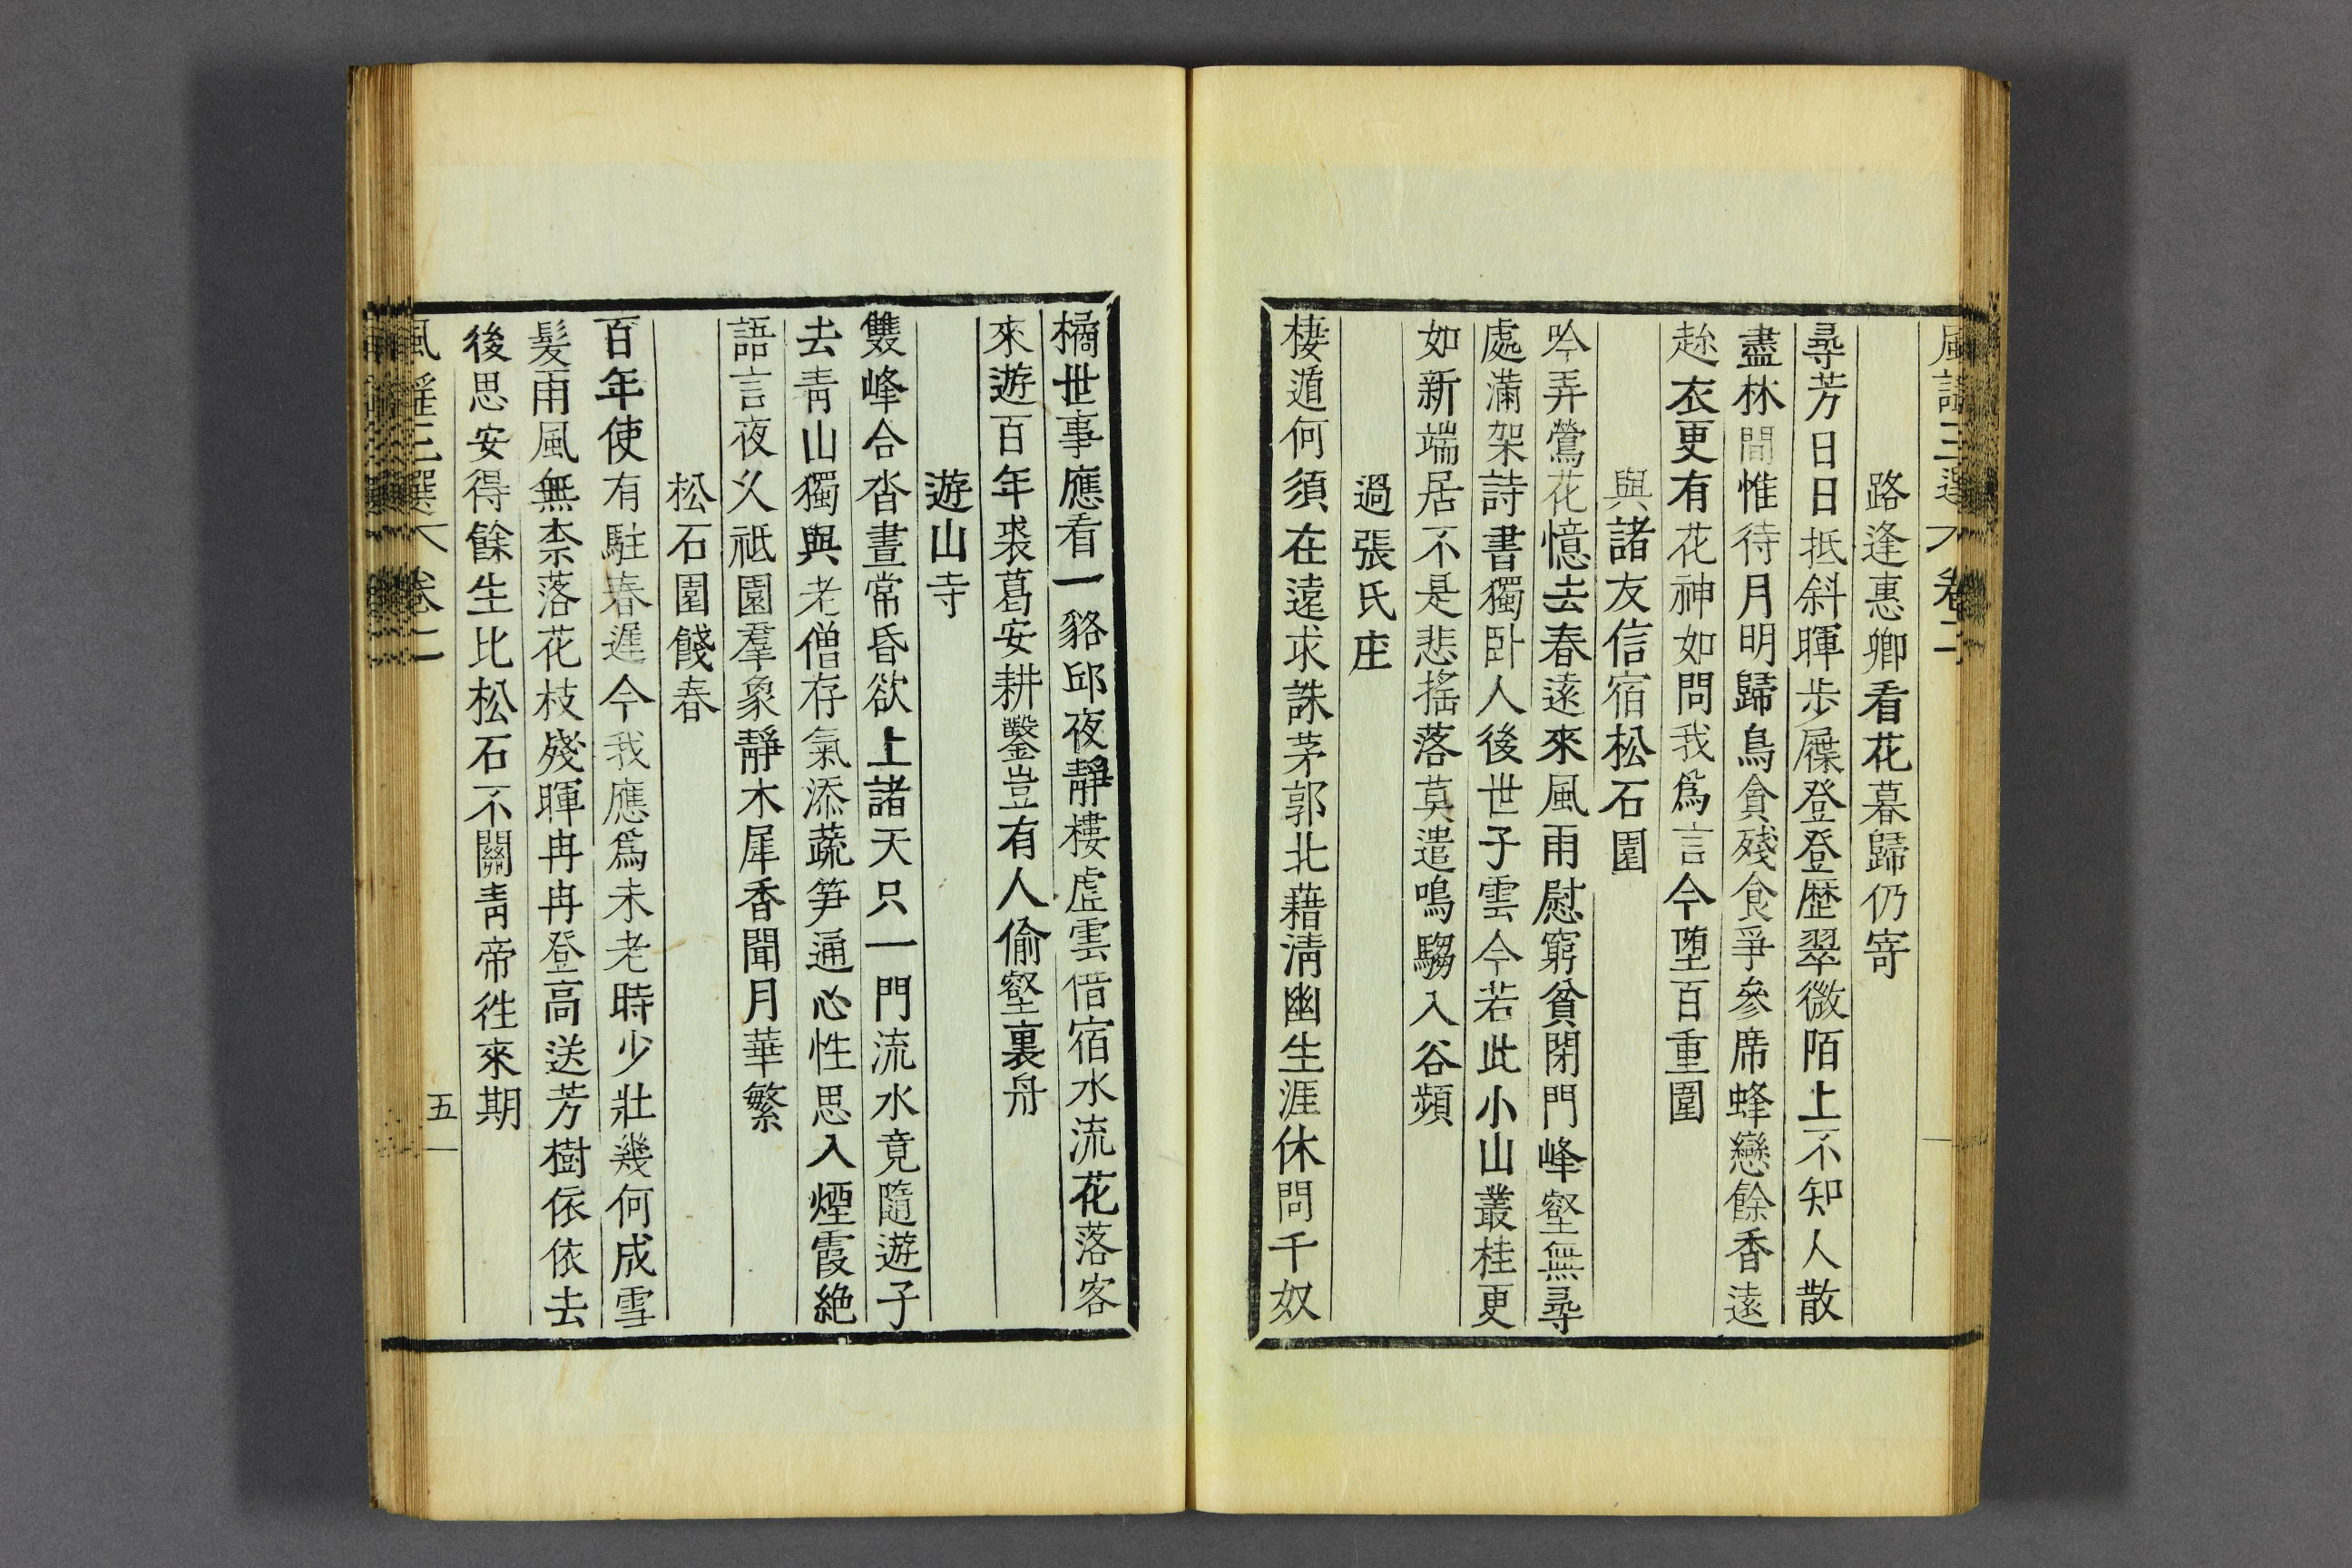 風謠三選 卷二
路逢惠卿看花暮歸仍寄
尋芳日日抵斜暉步屧登登歷翠微陌上不知人散
盡林間惟待月明歸鳥貪殘食爭參席蜂戀餘香遠
趂衣更有花神如問我爲言今墮百重圍
與諸友信宿松石園
吟弄鶯花憶去春遠來風雨慰窮貧閉門峰壑無尋
處滿架詩書獨卧人後世子雲今若此小山叢桂更
如新端居不是悲搖落莫遣鳴騶入谷頻
過張氏庄
棲遁何須在遠求誅茅郭北藉淸幽生涯休問千奴
橘世事應看一貉邱夜靜樓虛雲借宿水流花落客
來遊百年裘葛安耕鑿豈有人偷壑裏舟
遊山寺
雙峰合沓晝常昏欲上諸天只一門流水竟隨遊子
去靑山獨與老僧存氣添蔬笋通心性思入煙霞絶
語言夜久祗園羣象靜木犀香聞月華繁
松石園餞春
百年使有駐春遲今我應爲未老時少壯幾何成雪
髮雨風無柰落花枝殘暉冉冉登高送芳樹依依去
後思安得餘生比松石不關靑帝徃來期
風謠三選 卷二 五